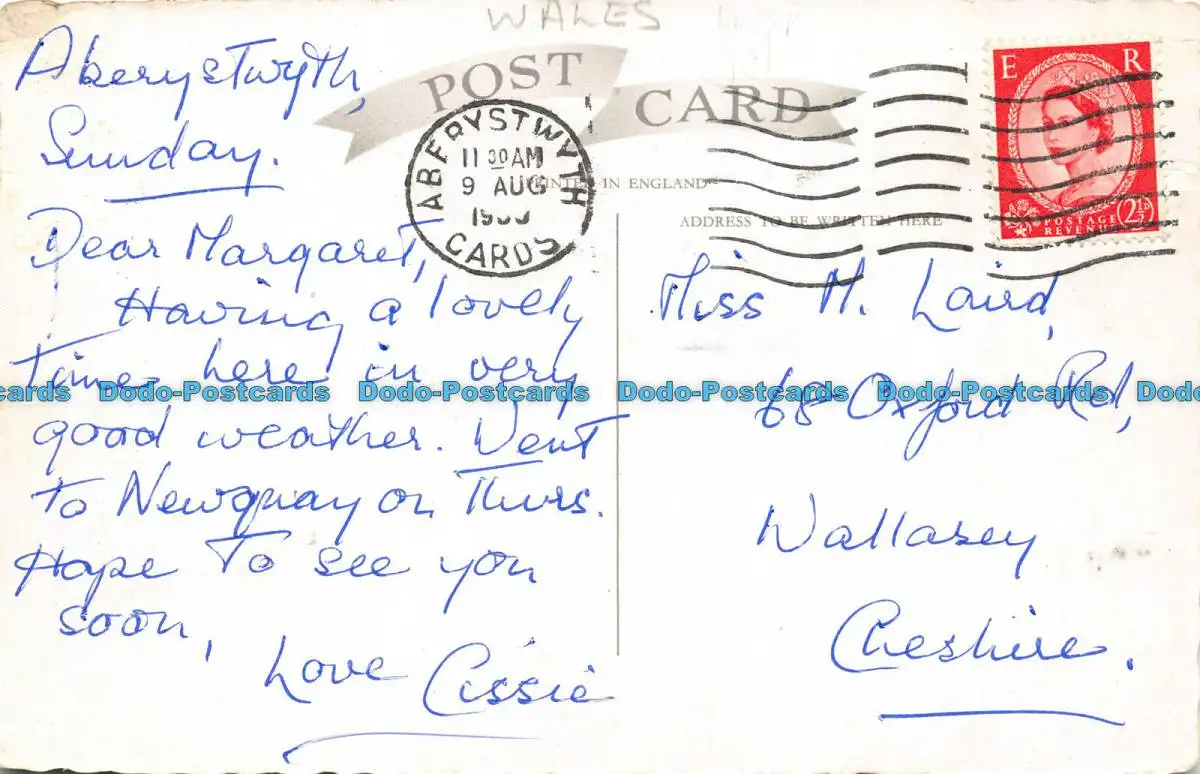 WALES
POST CARD
ABERYSTWYTH
11 30 AM
9 AUG
CARDS
E R
POSTAGE
REVENUE
2½D
PRINTED IN ENGLAND
ADDRESS TO BE WRITTEN HERE
Aberystwyth,
Sunday.
Dear Margaret,
Having a lovely
time here in very
good weather. Went
to Newquay on Thurs.
Hope to see you
soon,
Love Cissie
Miss M. Laird,
68 Oxford Rd,
Wallasey
Cheshire.
Dodo-Postcards Dodo-Postcards Dodo-Postcards Dodo-Postcards